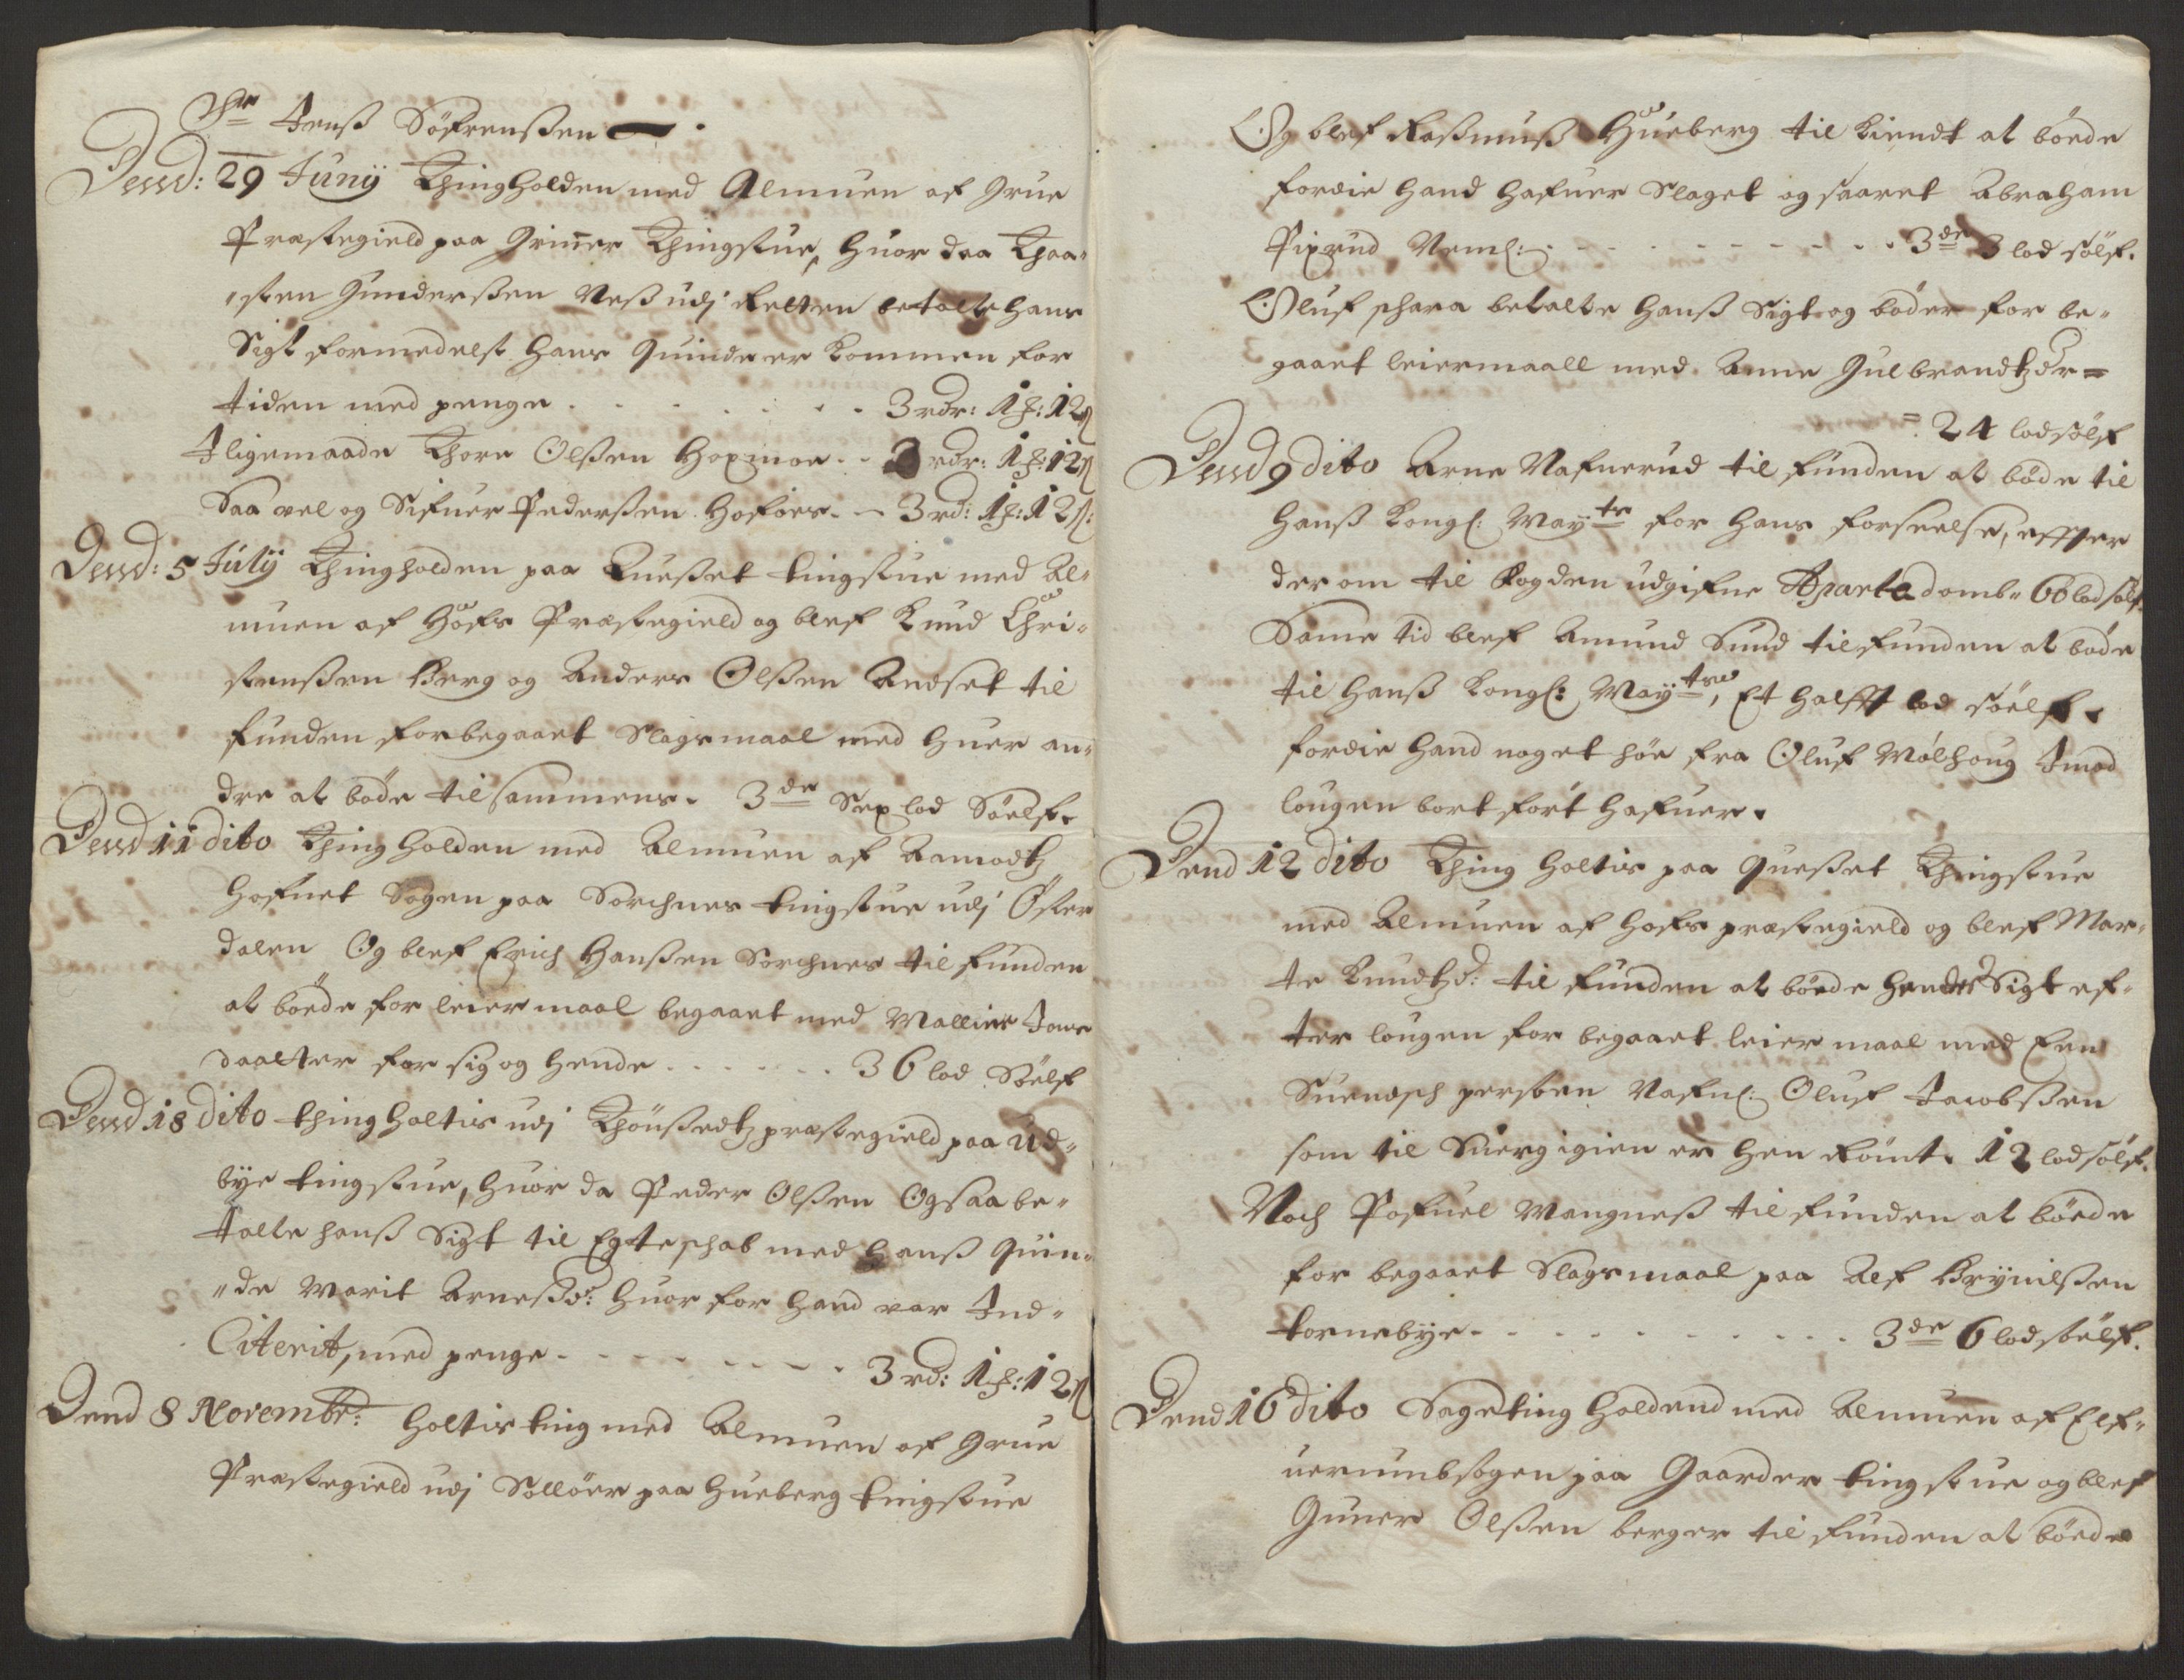 Hr Jenß Söfrenßen
Dend: 29 Junij Thingholden med Almuen af Grue
Præstegield paa Grinner Thingstue, huor daa Thaa-
sten Gunderßen Neß udj Relten betalte hans
Sigt formedelst hans Quinde er kommen for
tiden med penge . . . . . . . 3 rdr: 1 ꝑ: 12 ß
Iligemaade Thore Olßen Hoxmoe - - 3 rdr: 1 ꝑ: 12 ß
Saa vel og Sifuer Pederßen Hofoes - - 3 rd: 1 ꝑ: 12 ß:
Dend: 5 Julij Thingholden paa Queßet tingstue med Al-
muen af Hofs Præstegield og blef Knud Chri-
stenßen Berg og Anders Olßen Andset til
funden for begaaet Slagsmaal med huer an-
dre at böde tilsammens. 3de Sex lod Söelf.
Dend 11 dito Thing holden med Almuen af Aamodtz
hofuet Sogen paa Sorchnes tingstue udj Öster
dalen Og blef Erich Hanßen Sorchnes tilfunden
at böede for leiermaal begaaet med Mallin Jons
daatter for sig og hende . . . . . . 36 lod Söelf
Dend 18 dito thing holtis udj Thönßedtz præstegield paa Ud-
bye tingstue, huor da Peder Olßen Ogsaa be-
talte hanß Sigt til Egteschab med hanß Quin-
de Marit Arneßd: huor for hand var Ind-
Citerit, med penge - - - - - - - 3 rd: 1 ꝑ: 12 ß
Dend 8 Novembr: holtis ting med Almuen af Grue
Præstegield udj Sollöer paa Hueberg tingstue
Og blef Raßmuß Hueberg til kiendt at böede
fordie hand hafuer Slaget og saaret Abraham
Pixrud Neml: - - - - - - - - - 3de 3 lod sölf.
Oluf schara betalte hanß Sigt og böder for be-
gaaet leiermaall med Anne Gulbrandtzdr =
= 24 lod sölf
Dend 9 dito Arne Nafnerud til funden at böde til
hanß kongl: Maytz for hans forseelse, effter
der om til fogden udgifne Aparte domb- 66 lod sölf.
Same tid blef Amund Sund tilfunden at böde
til hanß kongl: Mayts, Et halfft lod söelf.
fordie hand noget höe fra Oluf Mölhoug Imod
lougen bort fört hafuer.
Dend 12 dito Thing holtis paa Queßet Thingstue
med Almuen af Hofs præstegield og blef Mar-
te Knudtzd: til funden at böede hendes Sigt ef-
ter lougen for begaaet leiermaal med Een
Suendsch persoen Nafnl: Oluf Jacobßen
som til Suerg igien er hen Römt. 12 lod sölf.
Noch Pofuel Mangneß til funden at böede
for begaaet Slagsmaal paa Alf Brynilßen
tornebye - - - - - - - - - - - 3de 6 lod söelf.
Dend 16 dito Sageting holdend med Almuen af Elf-
uerumbsogen paa Gaarder tingstue og blef
Guner Olßen berger til funden at böede